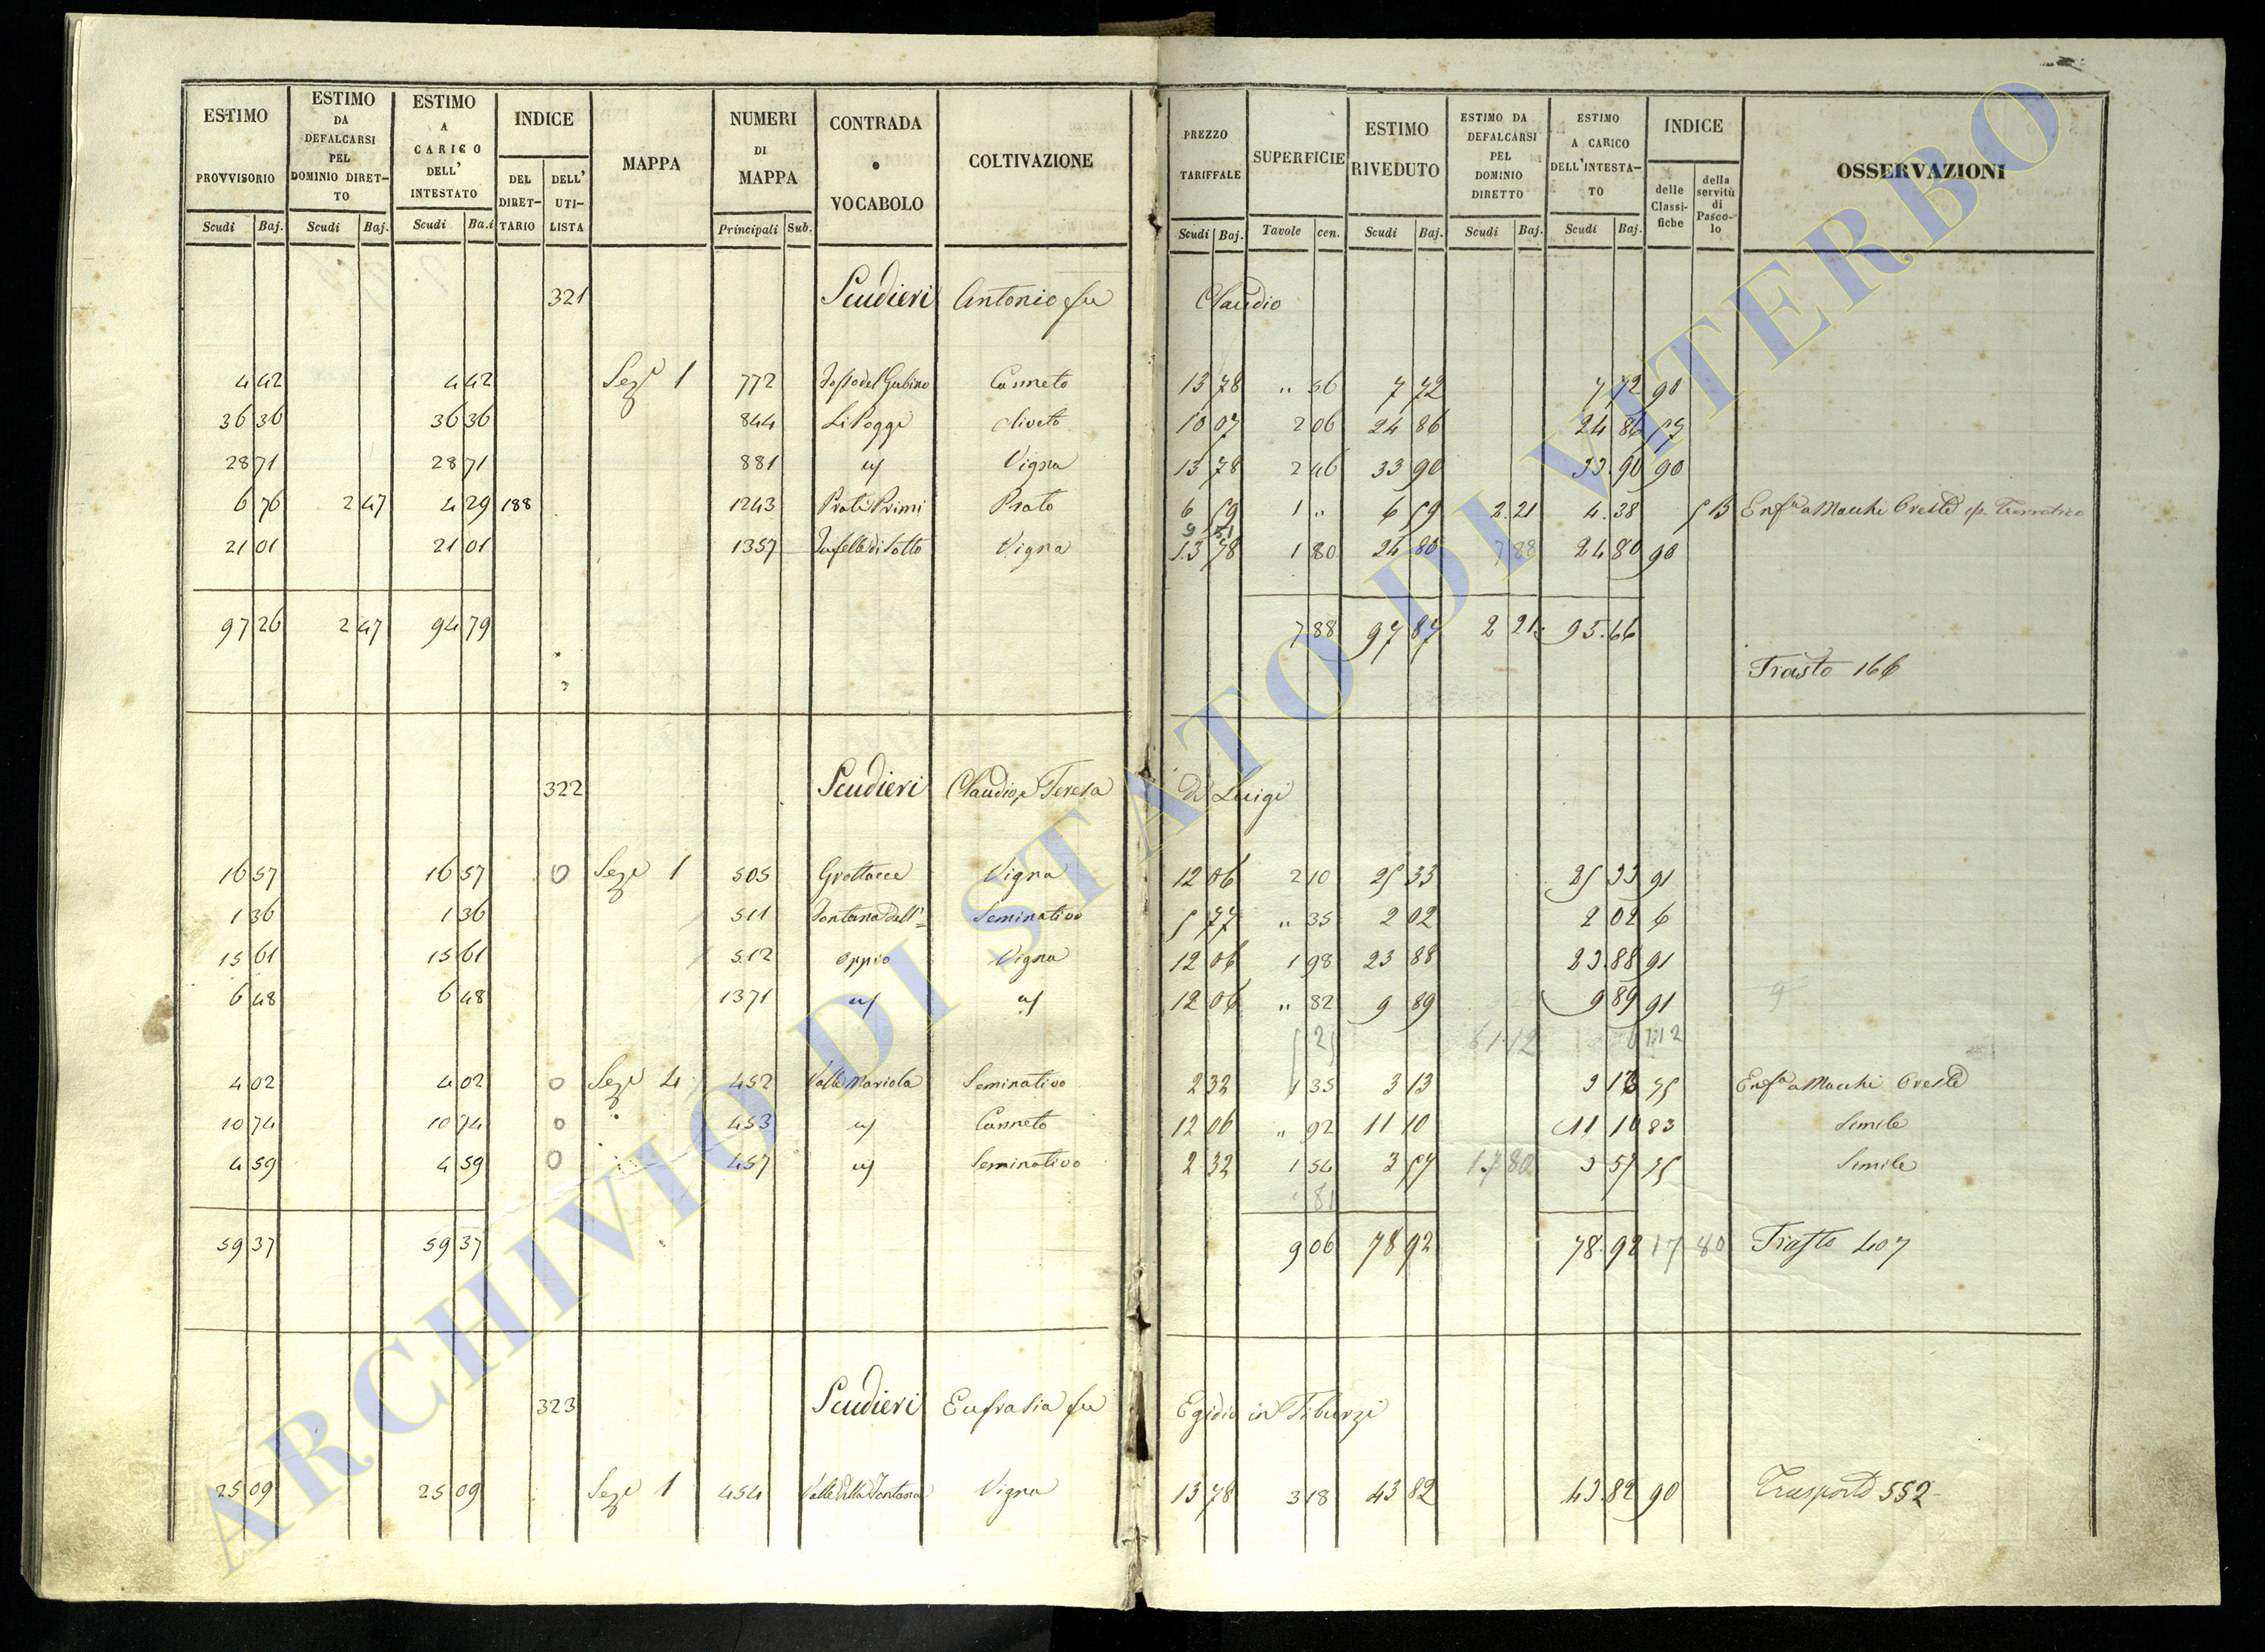 ESTIMO PROVVISORIO Scudi Baj.
ESTIMO DA DEFALCARSI PEL DOMINIO DIRET- TO Scudi Baj.
ESTIMO A CARICO DELL' INTESTATO Scudi Ba.i
INDICE DEL DIRET- TARIO DELL' UTI- LISTA
MAPPA
NUMERI DI MAPPA Principali Sub.
CONTRADA o VOCABOLO
COLTIVAZIONE
PREZZO TARIFFALE Scudi Baj.
SUPERFICIE Tavole cen.
ESTIMO RIVEDUTO Scudi Baj.
ESTIMO DA DEFALCARSI PEL DOMINIO DIRETTO Scudi Baj.
ESTIMO A CARICO DELL'INTESTA- TO Scudi Baj.
INDICE delle Classi- fiche della servitù di Pasco- lo
OSSERVAZIONI
321 Scudieri Antonio fu Claudio
4 42 4 42 Sezе 1 772 Fosso del Gubino Canneto 13 78 " 56 7 72 7 72 90
36 36 36 36 844 Li Poggi Oliveto 10 07 2 06 24 86 24 86
28 71 28 71 881 Vigna 13 78 2 46 33 90 33 90 90
6 76 2 47 4 29 188 1243 Prati Primi Prato 6 59 1 " 6 59 2.21 4.38 Macchi Oreste
21 01 21 01 1357 Tufelle di Sotto Vigna 13 78 1 80 24 80 7 88 24 80 90
97 26 2 47 94 79 7 88 97 87 2 21 95.66
Trasto 166
322 Scudieri Claudio, e Teresa di Luigi
16 57 16 57 0 Seze 1 505 Grottacce Vigna 12 06 2 10 25 33 25 33 91
1 36 1 36 511 Fontana dell'= Seminativo 5 77 " 35 2 02 2 02 6
15 61 15 61 512 oppio Vigna 12 06 1 98 23 88 23.88 91
6 48 6 48 1371 12 06 " 82 9 89 9 89 91
61.12
4 02 4 02 0 Seze 4 452 Valle Mariola Seminativo 2 32 1 35 3 13 3 13 Macchi Oreste
10 74 10 74 0 453 Canneto 12 06 " 92 11 10 11 10 83 Simile
4 59 4 59 0 457 Seminativo 2 32 1 54 3 57 17 80 3 57 Simile
59 37 59 37 9 06 78 92 78.92 17 80 Trasto 407
323 Scudieri Eufrasia fu Egidio in Tiburzi
25 09 25 09 Seze 1 454 Valle della Fontana Vigna 13 78 3 18 43 82 43.82 90 Trasporto 552
ARCHIVIO DI STATO DI VITERBO